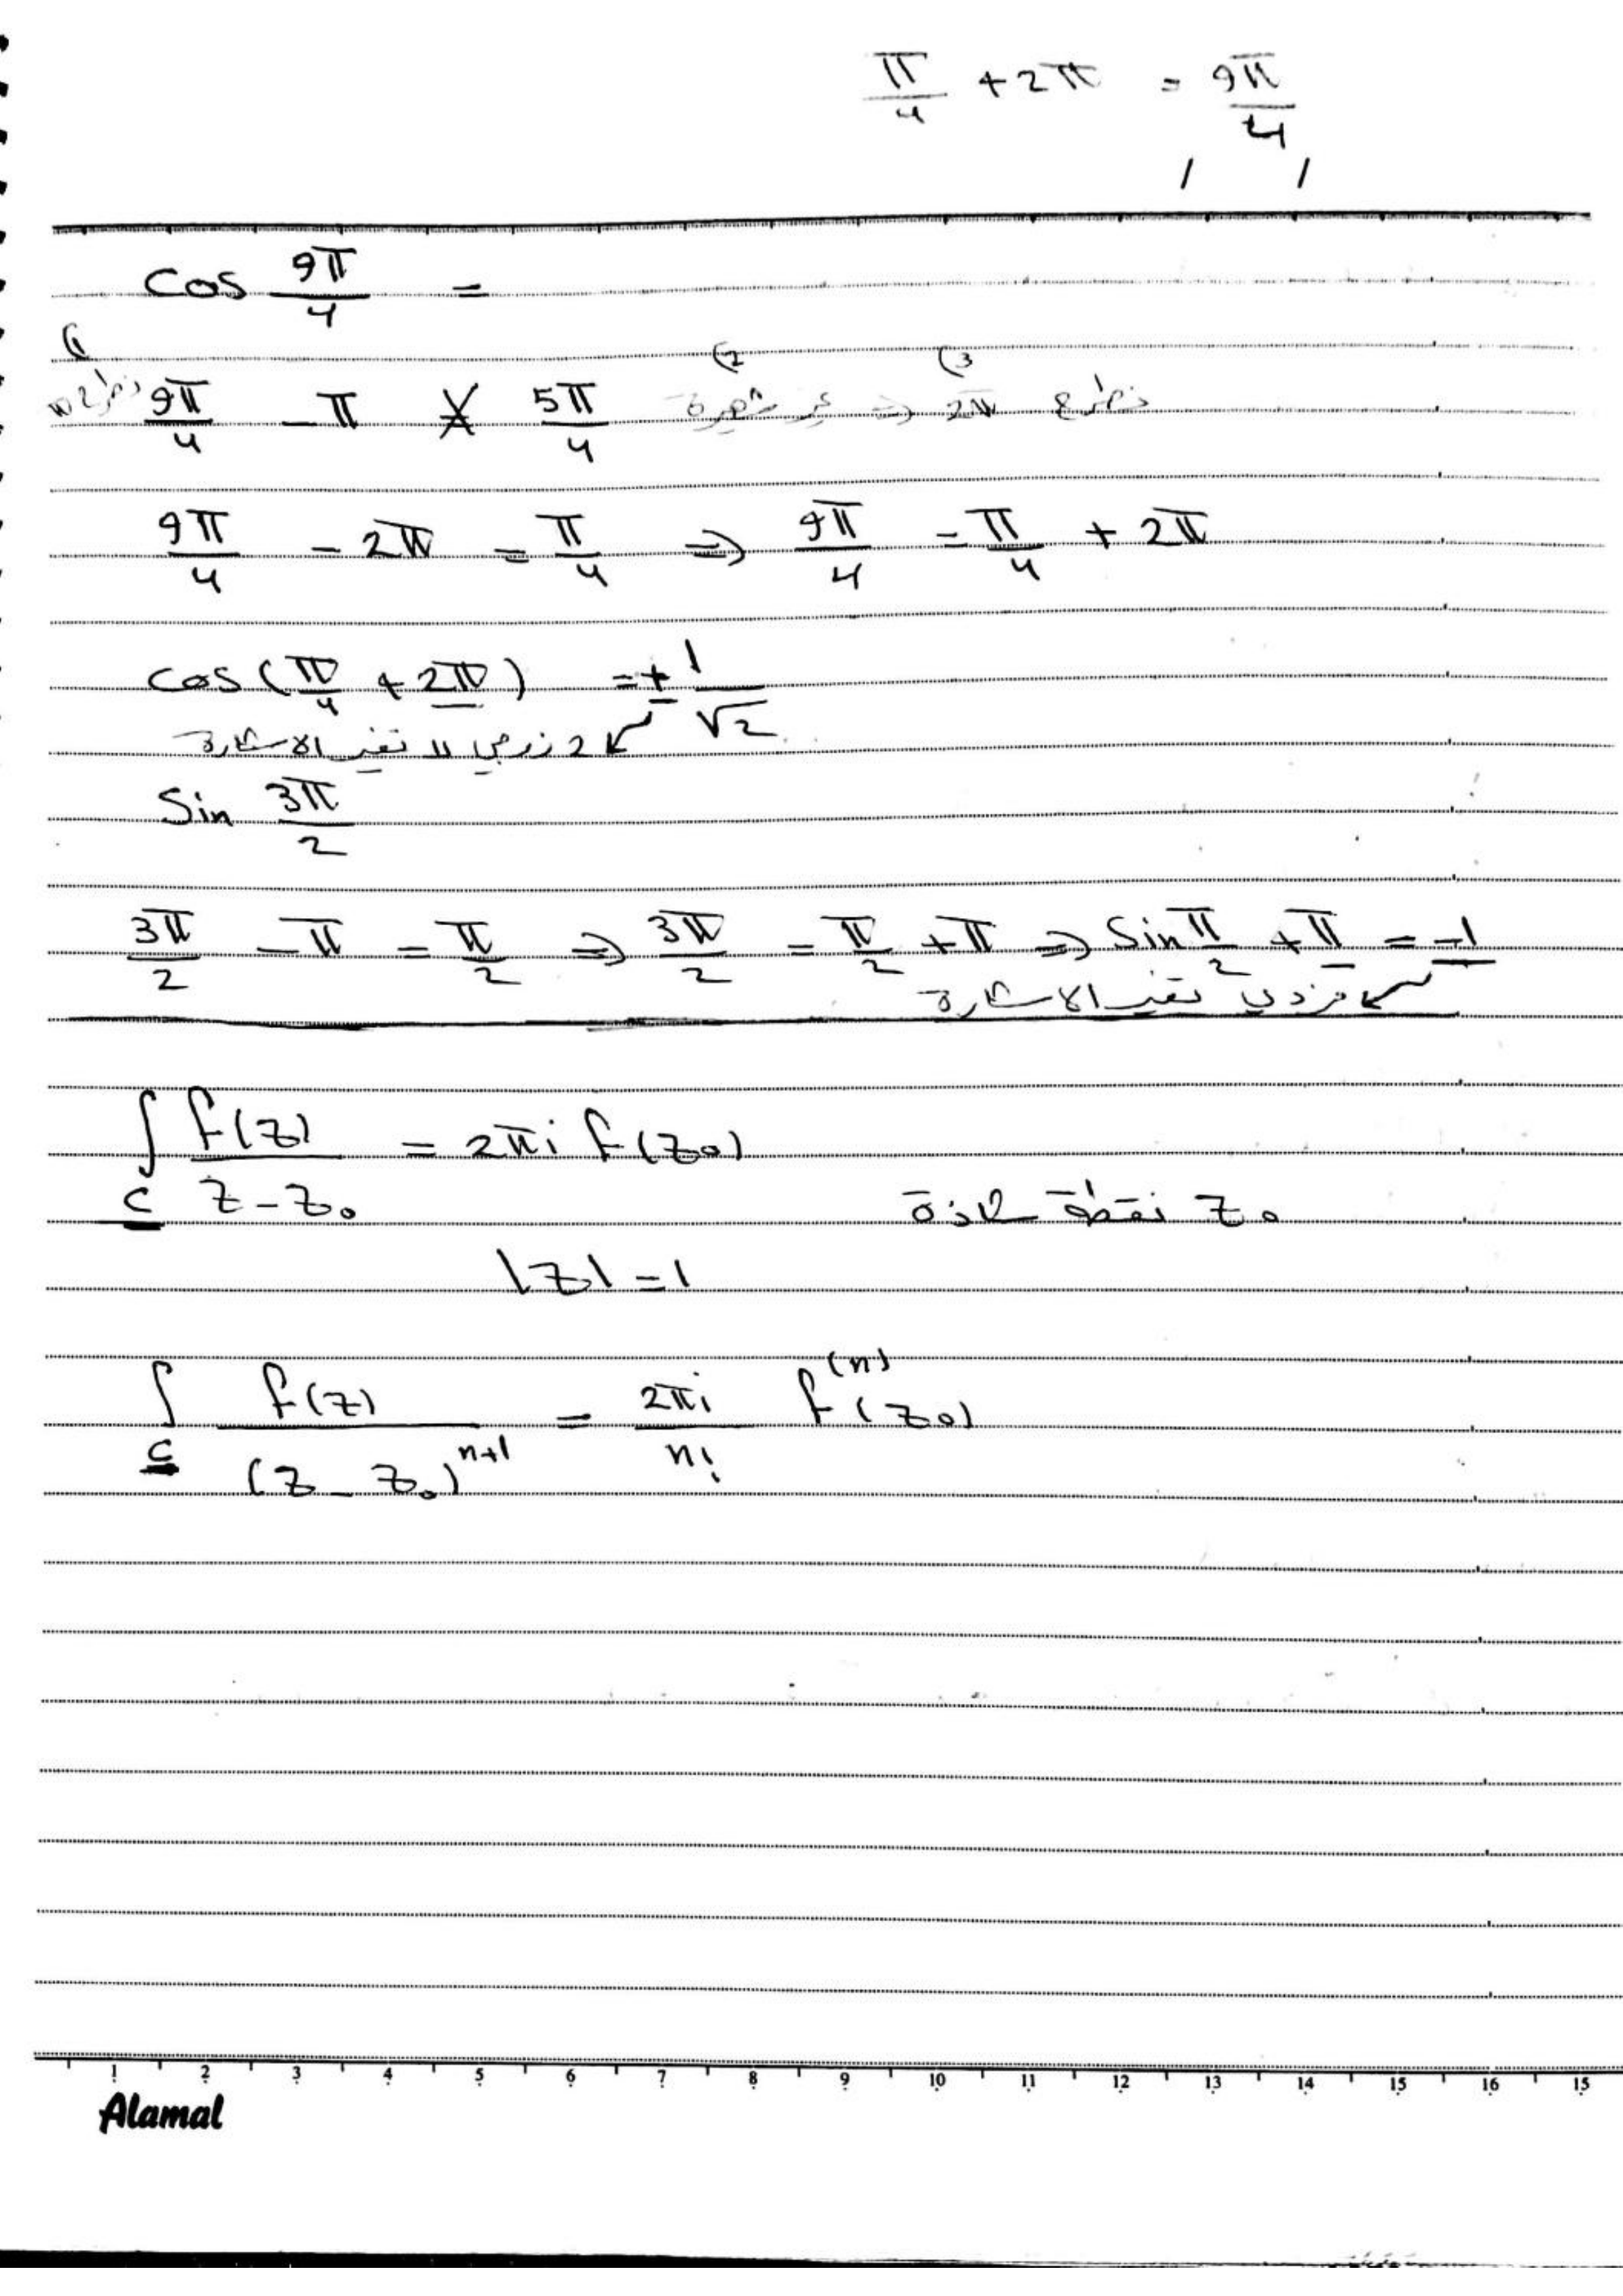 π/4 + 2π = 9π/4
/ /
cos 9π/4 =
(1 (2 (3
نطرح 9π/4 - π ≠ 5π/4 غير شهيرة ⇒ 2π نطرح
9π/4 - 2π = π/4 ⇒ 9π/4 = π/4 + 2π
cos(π/4 + 2π) = + 1/√2
2 زوجي لا تغير الاشارة
Sin 3π/2
3π/2 - π = π/2 ⇒ 3π/2 = π/2 + π ⇒ Sin π/2 + π = -1
فردي تغير الاشارة
∫_C f(z)/(z - z₀) = 2πi f(z₀)
z₀ نقطة شاذة
|z| = 1
∫_C f(z)/(z - z₀)^(n+1) = 2πi/n! f^(n)(z₀)
1 2 3 4 5 6 7 8 9 10 11 12 13 14 15 16 15
Alamal